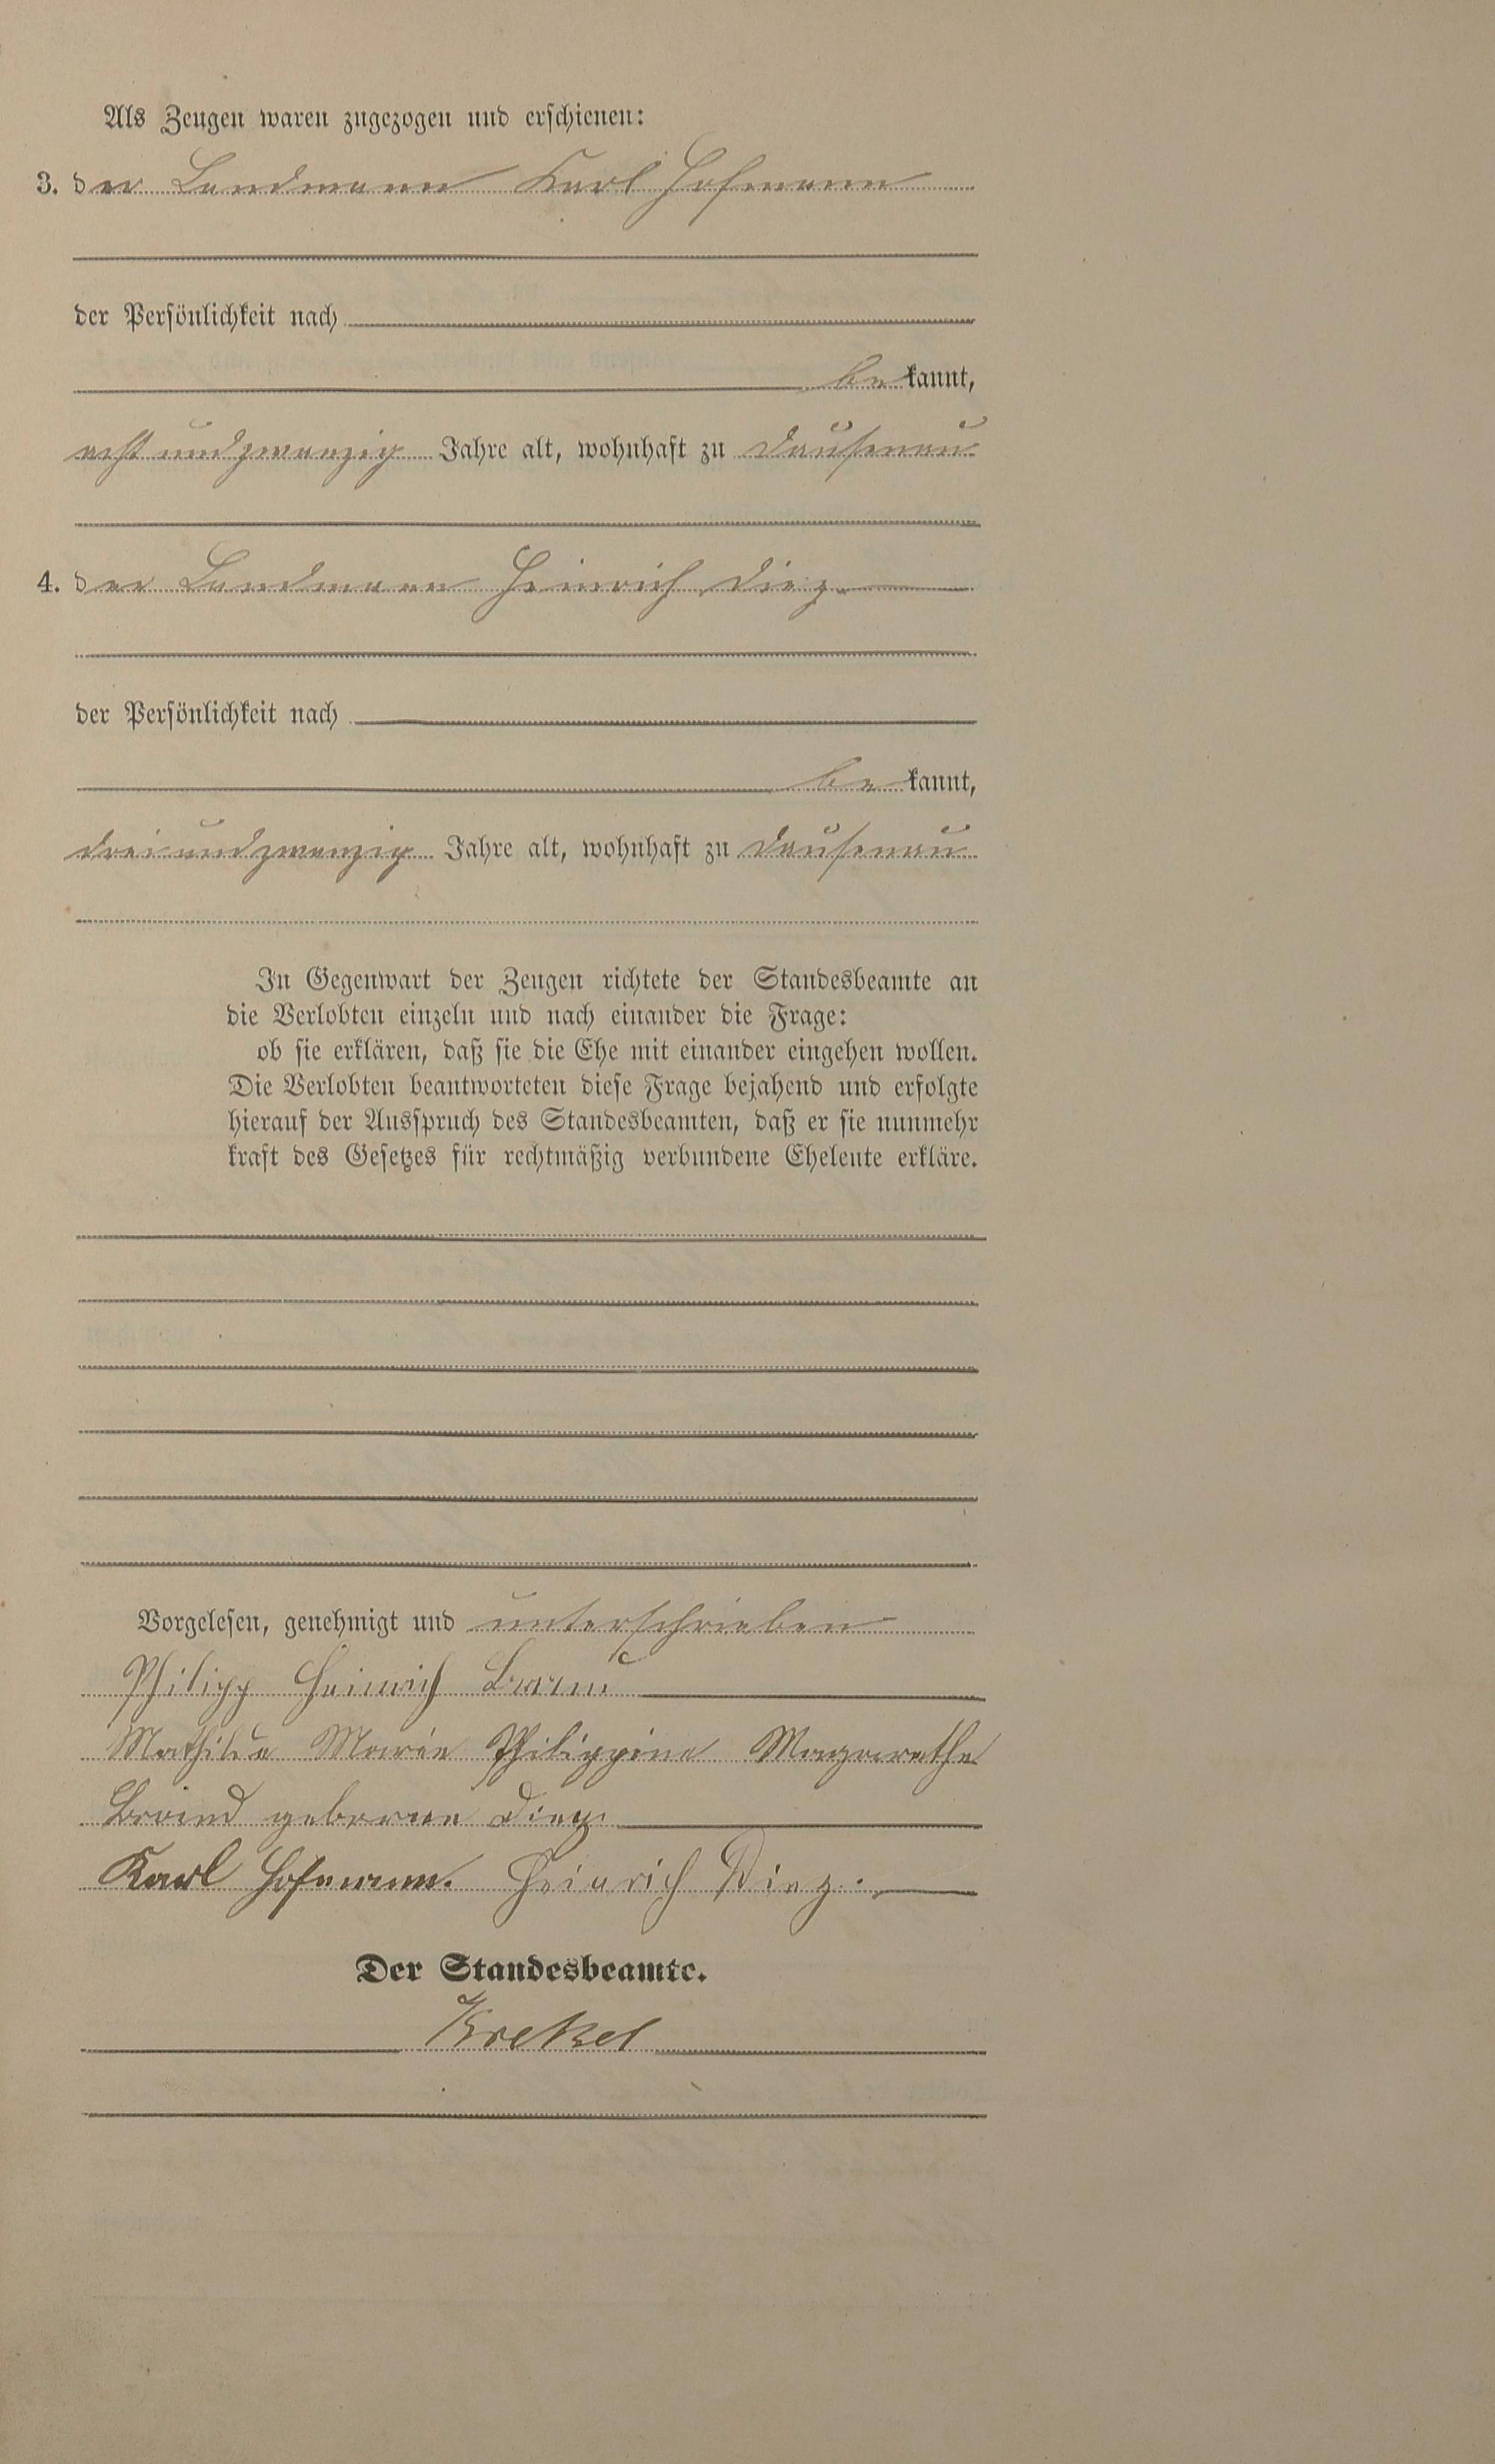 Als Zeugen waren zugezogen und erschienen:
3. der Landmann Karl Hofmann
der Persönlichkeit nach
be kannt,
acht und zwanzig Jahre alt, wohnhaft zu Dausenau
4. der Landmann Heinrich Diez
der Persönlichkeit nach
be kannt,
drei und zwanzig Jahre alt, wohnhaft zu Dausenau
In Gegenwart der Zeugen richtete der Standesbeamte an
die Verlobten einzeln und nach einander die Frage:
ob sie erklären, daß sie die Ehe mit einander eingehen wollen.
Die Verlobten beantworteten diese Frage bejahend und erfolgte
hierauf der Ausspruch des Standesbeamten, daß er sie nunmehr
kraft des Gesetzes für rechtmäßig verbundene Eheleute erkläre.
Vorgelesen, genehmigt und unterschrieben
Philipp Heinrich
Mathilde Marie Philippine Margarethe
geborene Diez
Karl Hofmann. Heinrich Diez.
Der Standesbeamte.
Krekel